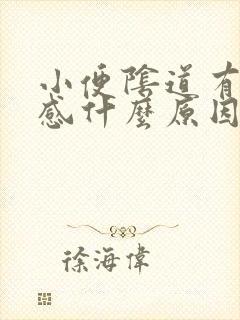 小便陰道有
感什麼原因
徐海偉